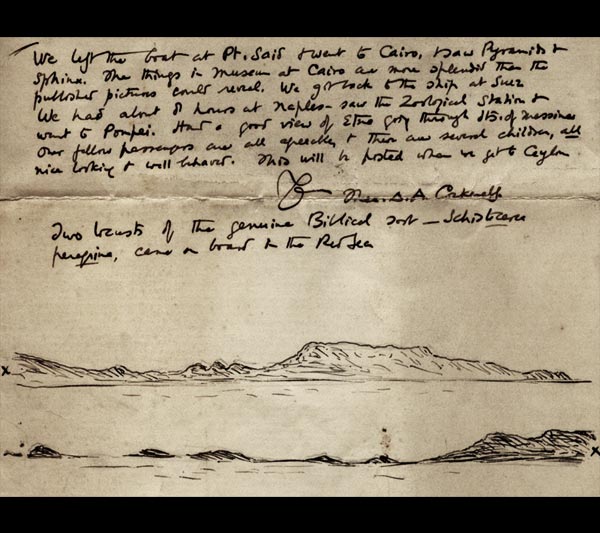 We left the boat at Pt. Said & went to Cairo, & saw Pyramids &
Sphinx. The things in Museum at Cairo are more splendid than the
published pictures could reveal. We got back to the ship at Suez
We had about 8 hours at Naples - saw the Zoological Station &
went to Pompei. Had a good view of Etna going through Sts. of Messina
Our fellow passengers are all agreeable, & there are several children, all
nice looking & well behaved. This will be posted when we get to Ceylon
Theo. D. A. Cockerell
Two locusts of the genuine Biblical sort — Schistocerca
peregrina, came on board in the Red Sea
x
x